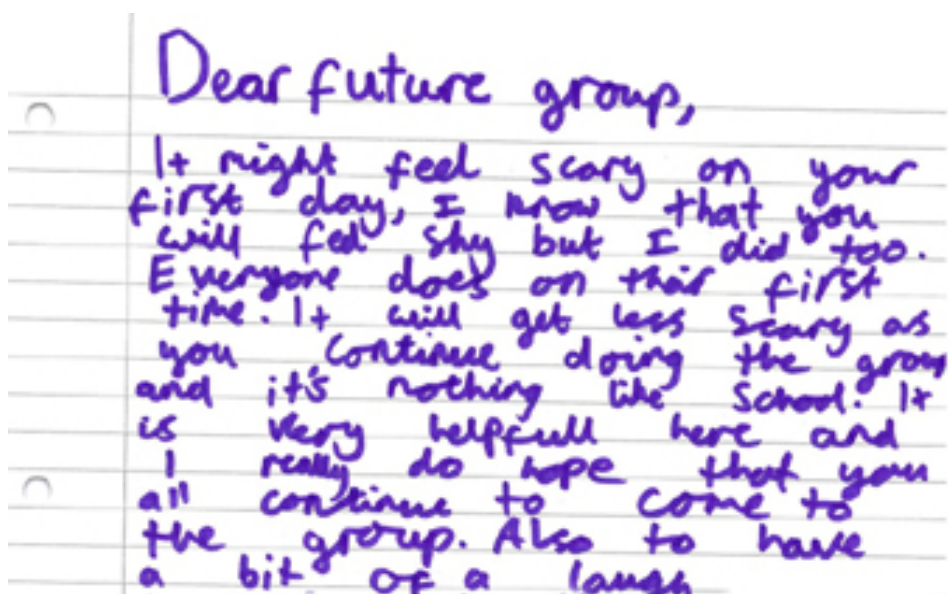 Dear future group,
It might feel scary on your
first day, I know that you
will feel shy but I did too.
Everyone does on their first
time. It will get less scary as
you continue doing the group
and it's nothing like school. It
is very helpfull here and
I really do hope that you
all continue to come to
the group. Also to have
a bit of a laugh